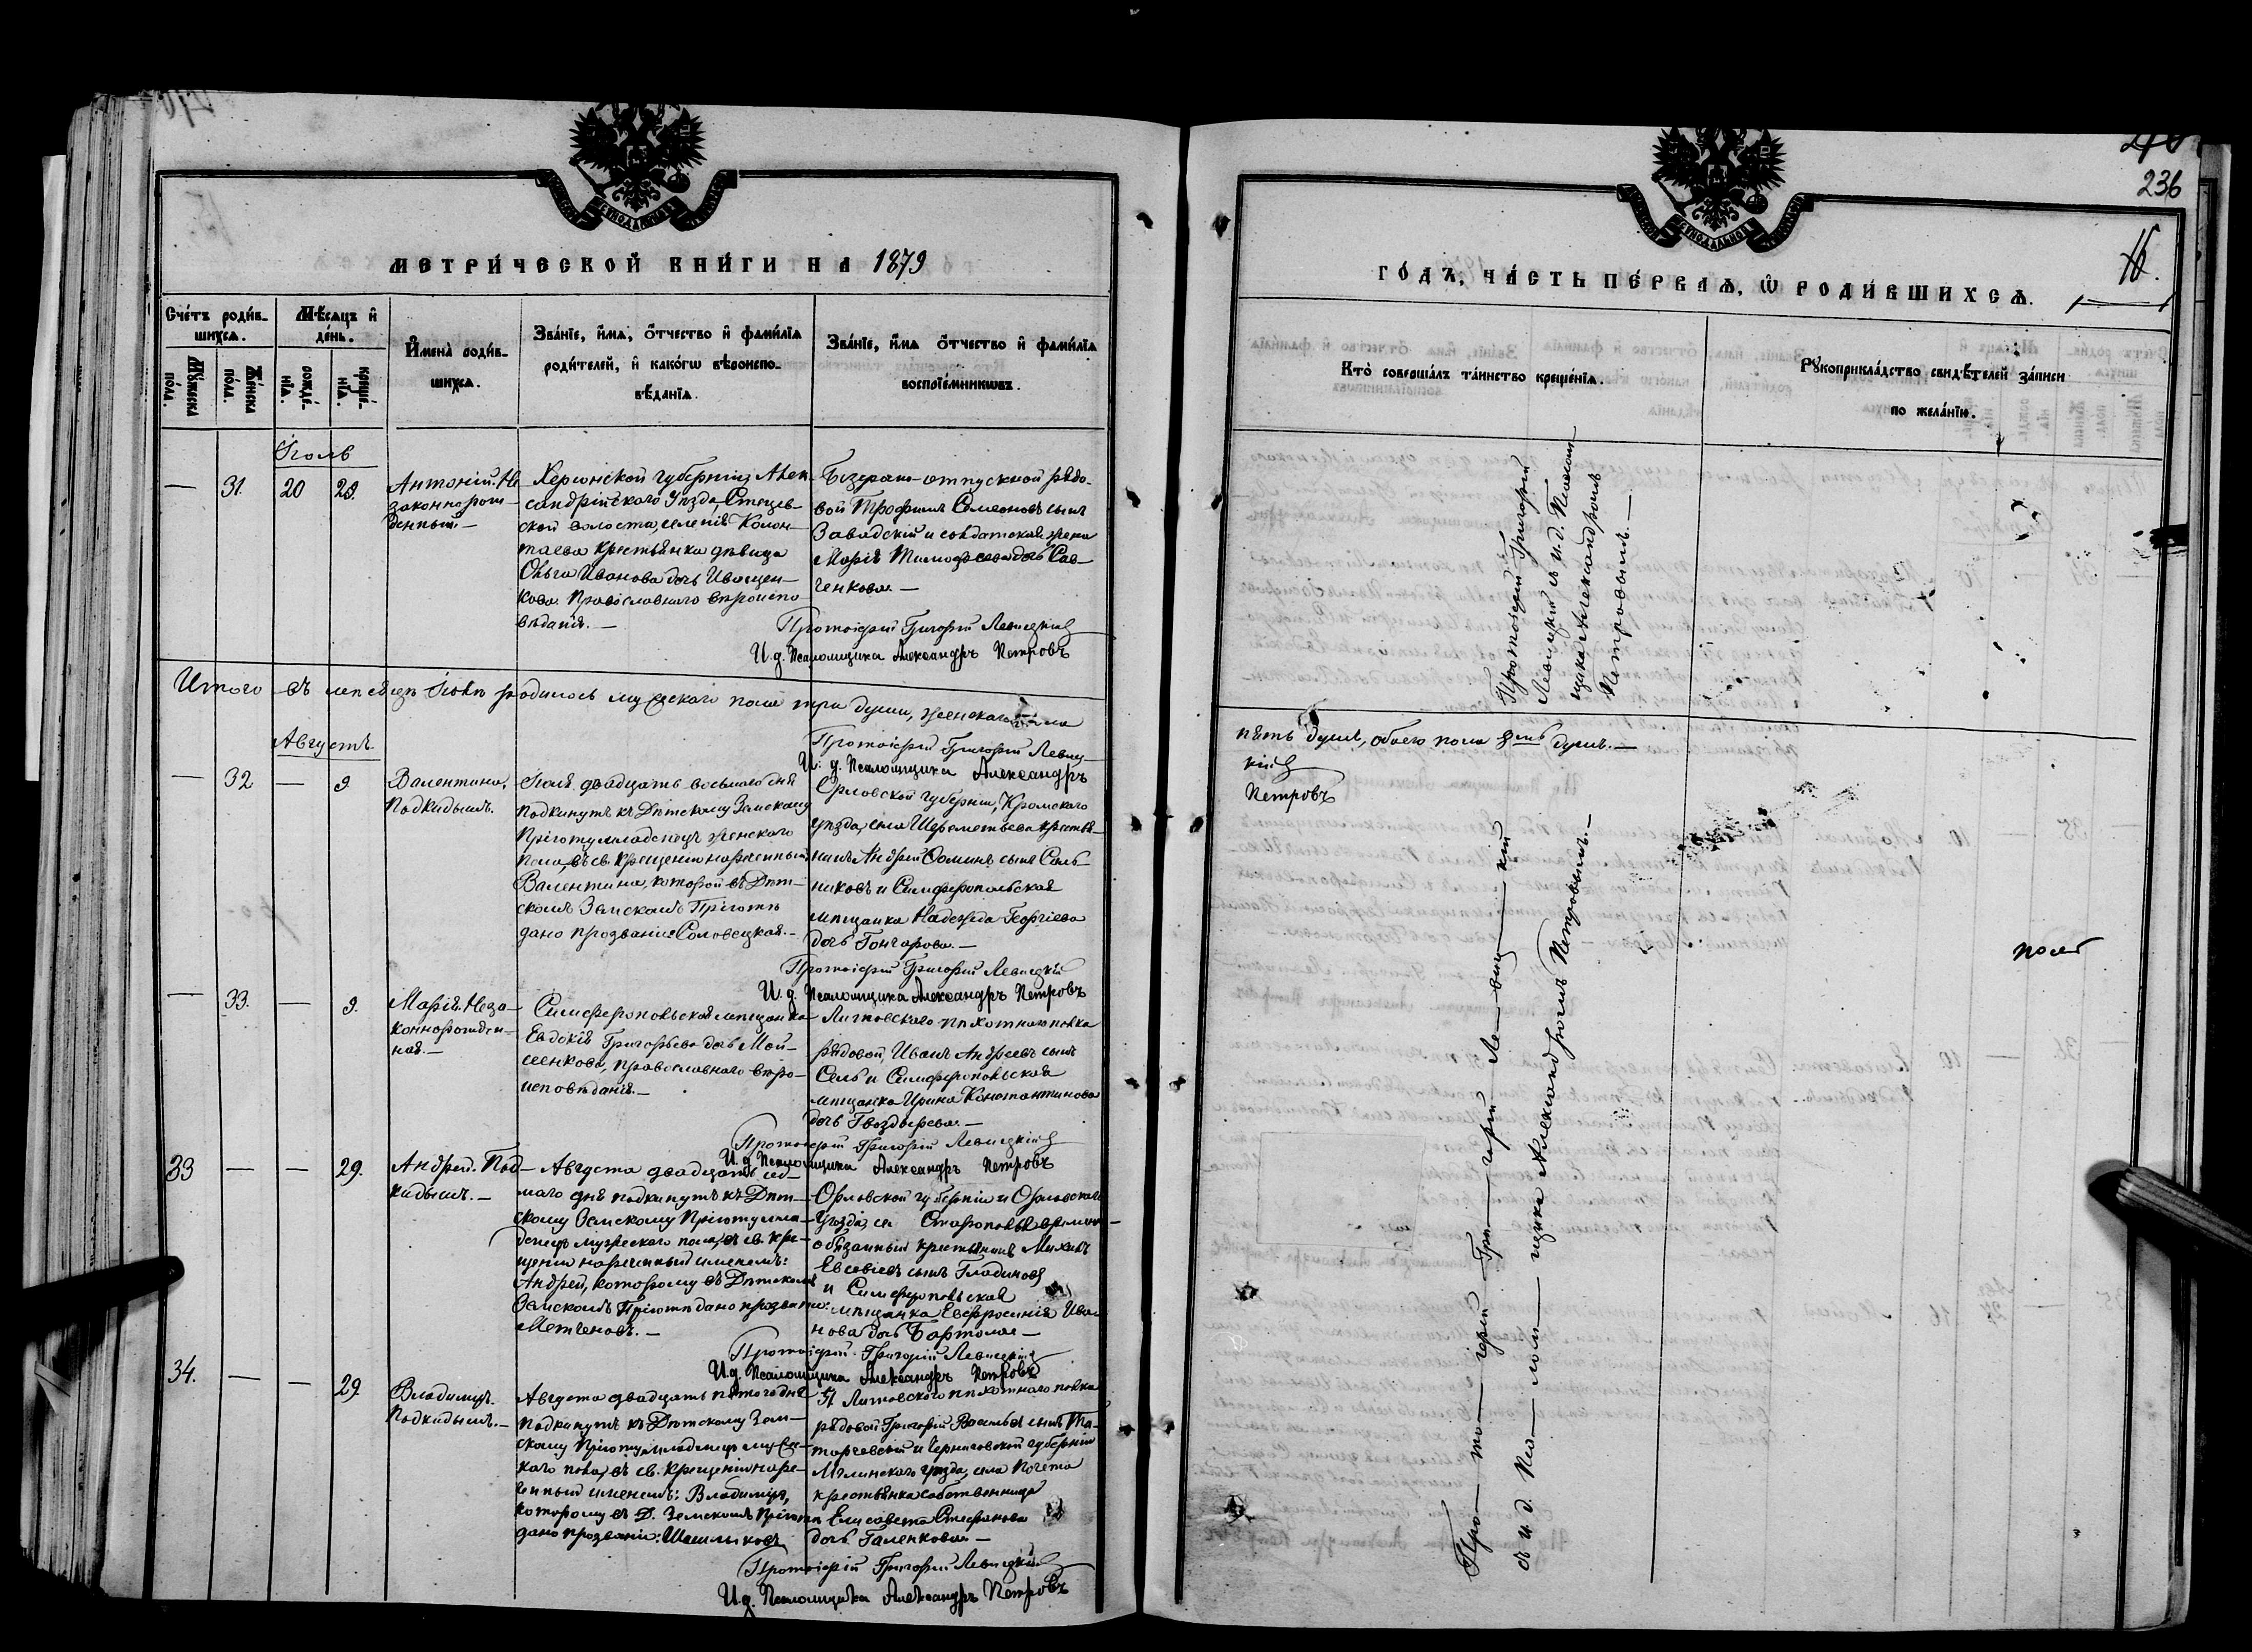 МЕТРИ́ЧЕСКОЙ КНИ́ГИ НА 1879
Сче́тъ роди́в-
шихсѧ.
Мѣ́сѧцъ и҆
де́нь.
И҆мена̀ роди́в-
шихсѧ.
Зва́нїе, и҆́мѧ, ѻ҆́тчество и҆ фами́лїѧ
роди́телей, и҆ како́гѡ вѣроиспо-
вѣ́данїѧ.
Зва́нїе, и҆́мѧ ѻ҆́тчество и҆ фами́лїѧ
воспрїе́мникѡвъ.
Мꙋ́жеска
по́ла.
Же́нска
по́ла.
рожде́-
нїѧ.
креще́-
нїѧ.
Іюль
—
31.
20
29.
Антоній. Не
законнорож-
денный. —
Херсонской губерніи, Алек-
сандрійскаго Уѣзда, Стецев-
ской волости, селенія Колон-
таева крестьянка дѣвица
Ольга Иванова дочь Иващен-
кова. Православнаго вѣроиспо
вѣданія. —
Безсрочно-отпускной рядо-
вой Трофимъ Семеоновъ сынъ
Завадскій и солдатская жена
Марія Тимофеева дочь Сав-
ченкова. —
Протоіерей Григорій Левицкій
И. д. Псаломщика Александръ Петровъ
Итого въ мѣсяцѣ Іюлѣ родилось мужескаго пола три души, женскаго пола
Августъ.
Протоіерей Григорій Левиц-
И. д. Псаломщика Александръ
—
32
—
9
Валентина.
Подкидышъ.
Іюля двадцать восьмаго дня
подкинутъ къ Дѣтскому Земскому
Пріюту младенецъ женского
пола, въ св. крещеніи нареченный
Валентина, которой въ Дѣт-
скомъ Земскомъ Пріютѣ
дано прозваніе: Соловецкая. —
Орловской губерніи, Кромскаго
уѣзда, села Шереметьева крестья-
нинъ Андрей Фоминъ сынъ Саль-
никовъ и Симферопольская
мѣщанка Надежда Георгіева
дочь Гончарова. —
Протоіерей Григорій Левицкій
И. д. Псаломщика Александръ Петровъ
—
33.
—
9.
Марія. Неза-
коннорожден-
ная. —
Симферопольская мѣщанка
Евдокія Григорьева дочь Мой-
сеенкова, православнаго вѣро-
исповѣданія. —
Литовскаго пѣхотнаго полка
рядовой, Иванъ Андреевъ сынъ
и Симферопольская
мѣщанка Ирина Константинова
дочь Гвоздырева. —
Протоіерей Григорій Левицкій
И. д. Псаломщика Александръ Петровъ
33
—
—
29.
Андрей. Под-
кидышъ. —
Августа двадцать седь-
маго дня подкинутъ къ Дѣт-
скому Земскому Пріюту мла-
денецъ мужескаго пола, въ св. кре-
щеніи нареченный именемъ:
Андрей, которому въ Дѣтскомъ
Земскомъ Пріютѣ дано прозваніе:
Метченовъ. —
Орловской губерніи и Орловскаго
Уѣзда, временно-
обязанный крестьянинъ
Евсевіевъ сынъ
и Симферопольская
мѣщанка Евфросинія Ива-
нова дочь —
Протоіерей Григорій Левицкій
И. д. Псаломщика Александръ Петровъ
34.
—
—
29
Владиміръ.
Подкидышъ. —
Августа двадцать пятаго дня
подкинутъ къ Дѣтскому Зем-
скому Пріюту младенецъ мужес-
каго пола, въ св. крещеніи наре-
ченный именемъ: Владиміръ,
которому въ Д. Земскомъ Пріютѣ
дано прозваніе: Шашлыковъ
51 Литовскаго пѣхотнаго полка
рядовой Григорій сынъ
и Черниговской губерніи
Мглинскаго уѣзда, села Почепа
крестьянка собственница
Елисавета Стефанова
дочь Галенкова. —
Протоіерей Григорій Левицкій
И. д. Псаломщика Александръ Петровъ
236
16.
ГО́ДЪ, ЧА́СТЬ ПЕ́РВАѦ, Ѡ҆ РОДИ́ВШИХСѦ.
Кто̀ соверша́лъ та́инство креще́нїѧ.
Рꙋкоприкла́дство свидѣ́телей за́писи
по жела́нїю.
Протоіерей Григорій
Левицкій съ и. д. Псалом-
щика Александромъ
Петровымъ. —
пять душъ, обоего пола 8мь душъ. —
кій
Петровъ
Про — то — іерей — Гри — горій — Ле — виц — кій
съ и. д. Пса — лом — щика Александромъ Петровымъ. —